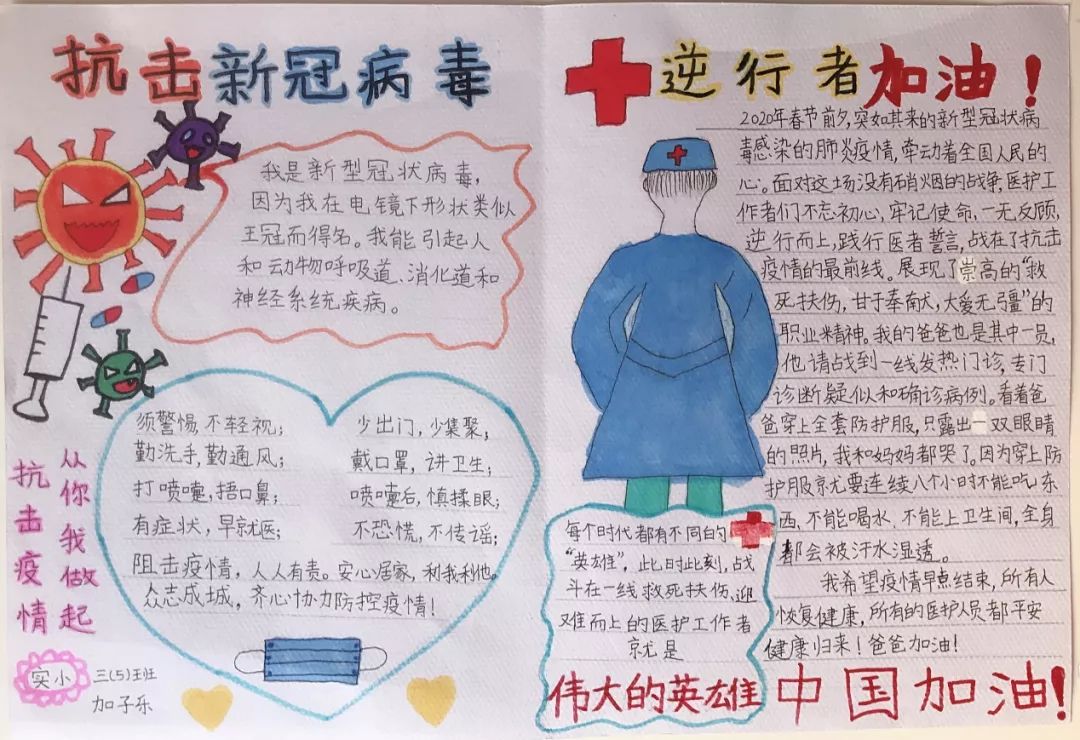 抗击新冠病毒
我是新型冠状病毒,
因为我在电镜下形状类似
王冠而得名。我能引起人
和动物呼吸道、消化道和
神经系统疾病。
须警惕,不轻视;
少出门,少集聚;
勤洗手,勤通风;
戴口罩,讲卫生;
打喷嚏,捂口鼻;
喷嚏后,慎揉眼;
有症状,早就医;
不恐慌,不传谣;
阻击疫情,人人有责。安心居家,利我利他。
众志成城,齐心协力防控疫情!
抗击疫情
从你我做起
实小
三(5)班
加子乐
逆行者加油!
2020年春节前夕,突如其来的新型冠状病
毒感染的肺炎疫情,牵动着全国人民的
心。面对这场没有硝烟的战争,医护工
作者们不忘初心,牢记使命,一无反顾,
逆行而上,践行医者誓言,战在了抗击
疫情的最前线。展现了崇高的“救
死扶伤,甘于奉献,大爱无疆”的
职业精神。我的爸爸也是其中一员,
他请战到一线发热门诊,专门
诊断疑似和确诊病例。看着爸
爸穿上全套防护服,只露出一双眼睛
的照片,我和妈妈都哭了。因为穿上防
护服就要连续八个小时不能吃东
西、不能喝水、不能上卫生间,全身
都会被汗水湿透。
我希望疫情早点结束,所有人
恢复健康,所有的医护人员都平安
健康归来!爸爸加油!
每个时代都有不同的
“英雄”,此时此刻,战
斗在一线救死扶伤、迎
难而上的医护工作者
就是
伟大的英雄
中国加油!